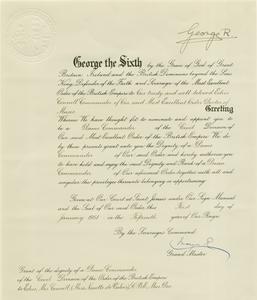 George R.
George the Sixth by the Grace of God of Great
Britain Ireland and the British Dominions beyond the Seas
King, Defender of the Faith and Sovereign of the Most Excellent
Order of the British Empire to Our trusty and well beloved
Commander of Our said Most Excellent Order Doctor of
Music
Greeting
Whereas We have thought fit to nominate and appoint you to
be a Dame Commander of the Civil Division of
Our said Most Excellent Order of the British Empire We do
by these presents grant unto you the Dignity of a Dame
Commander of Our said Order and hereby authorise you
to have hold and enjoy the said Dignity and Rank of a Dame
Commander of Our aforesaid Order together with all and
singular the privileges thereunto belonging or appertaining
Given at Our Court at Saint James's under Our Sign Manual
and the Seal of Our said Order this First day of
January 1951 in the Fifteenth year of Our Reign
By the Sovereign's Command
Grand Master
Grant of the dignity of a Dame Commander
of the Civil Division of the Order of the British Empire
to